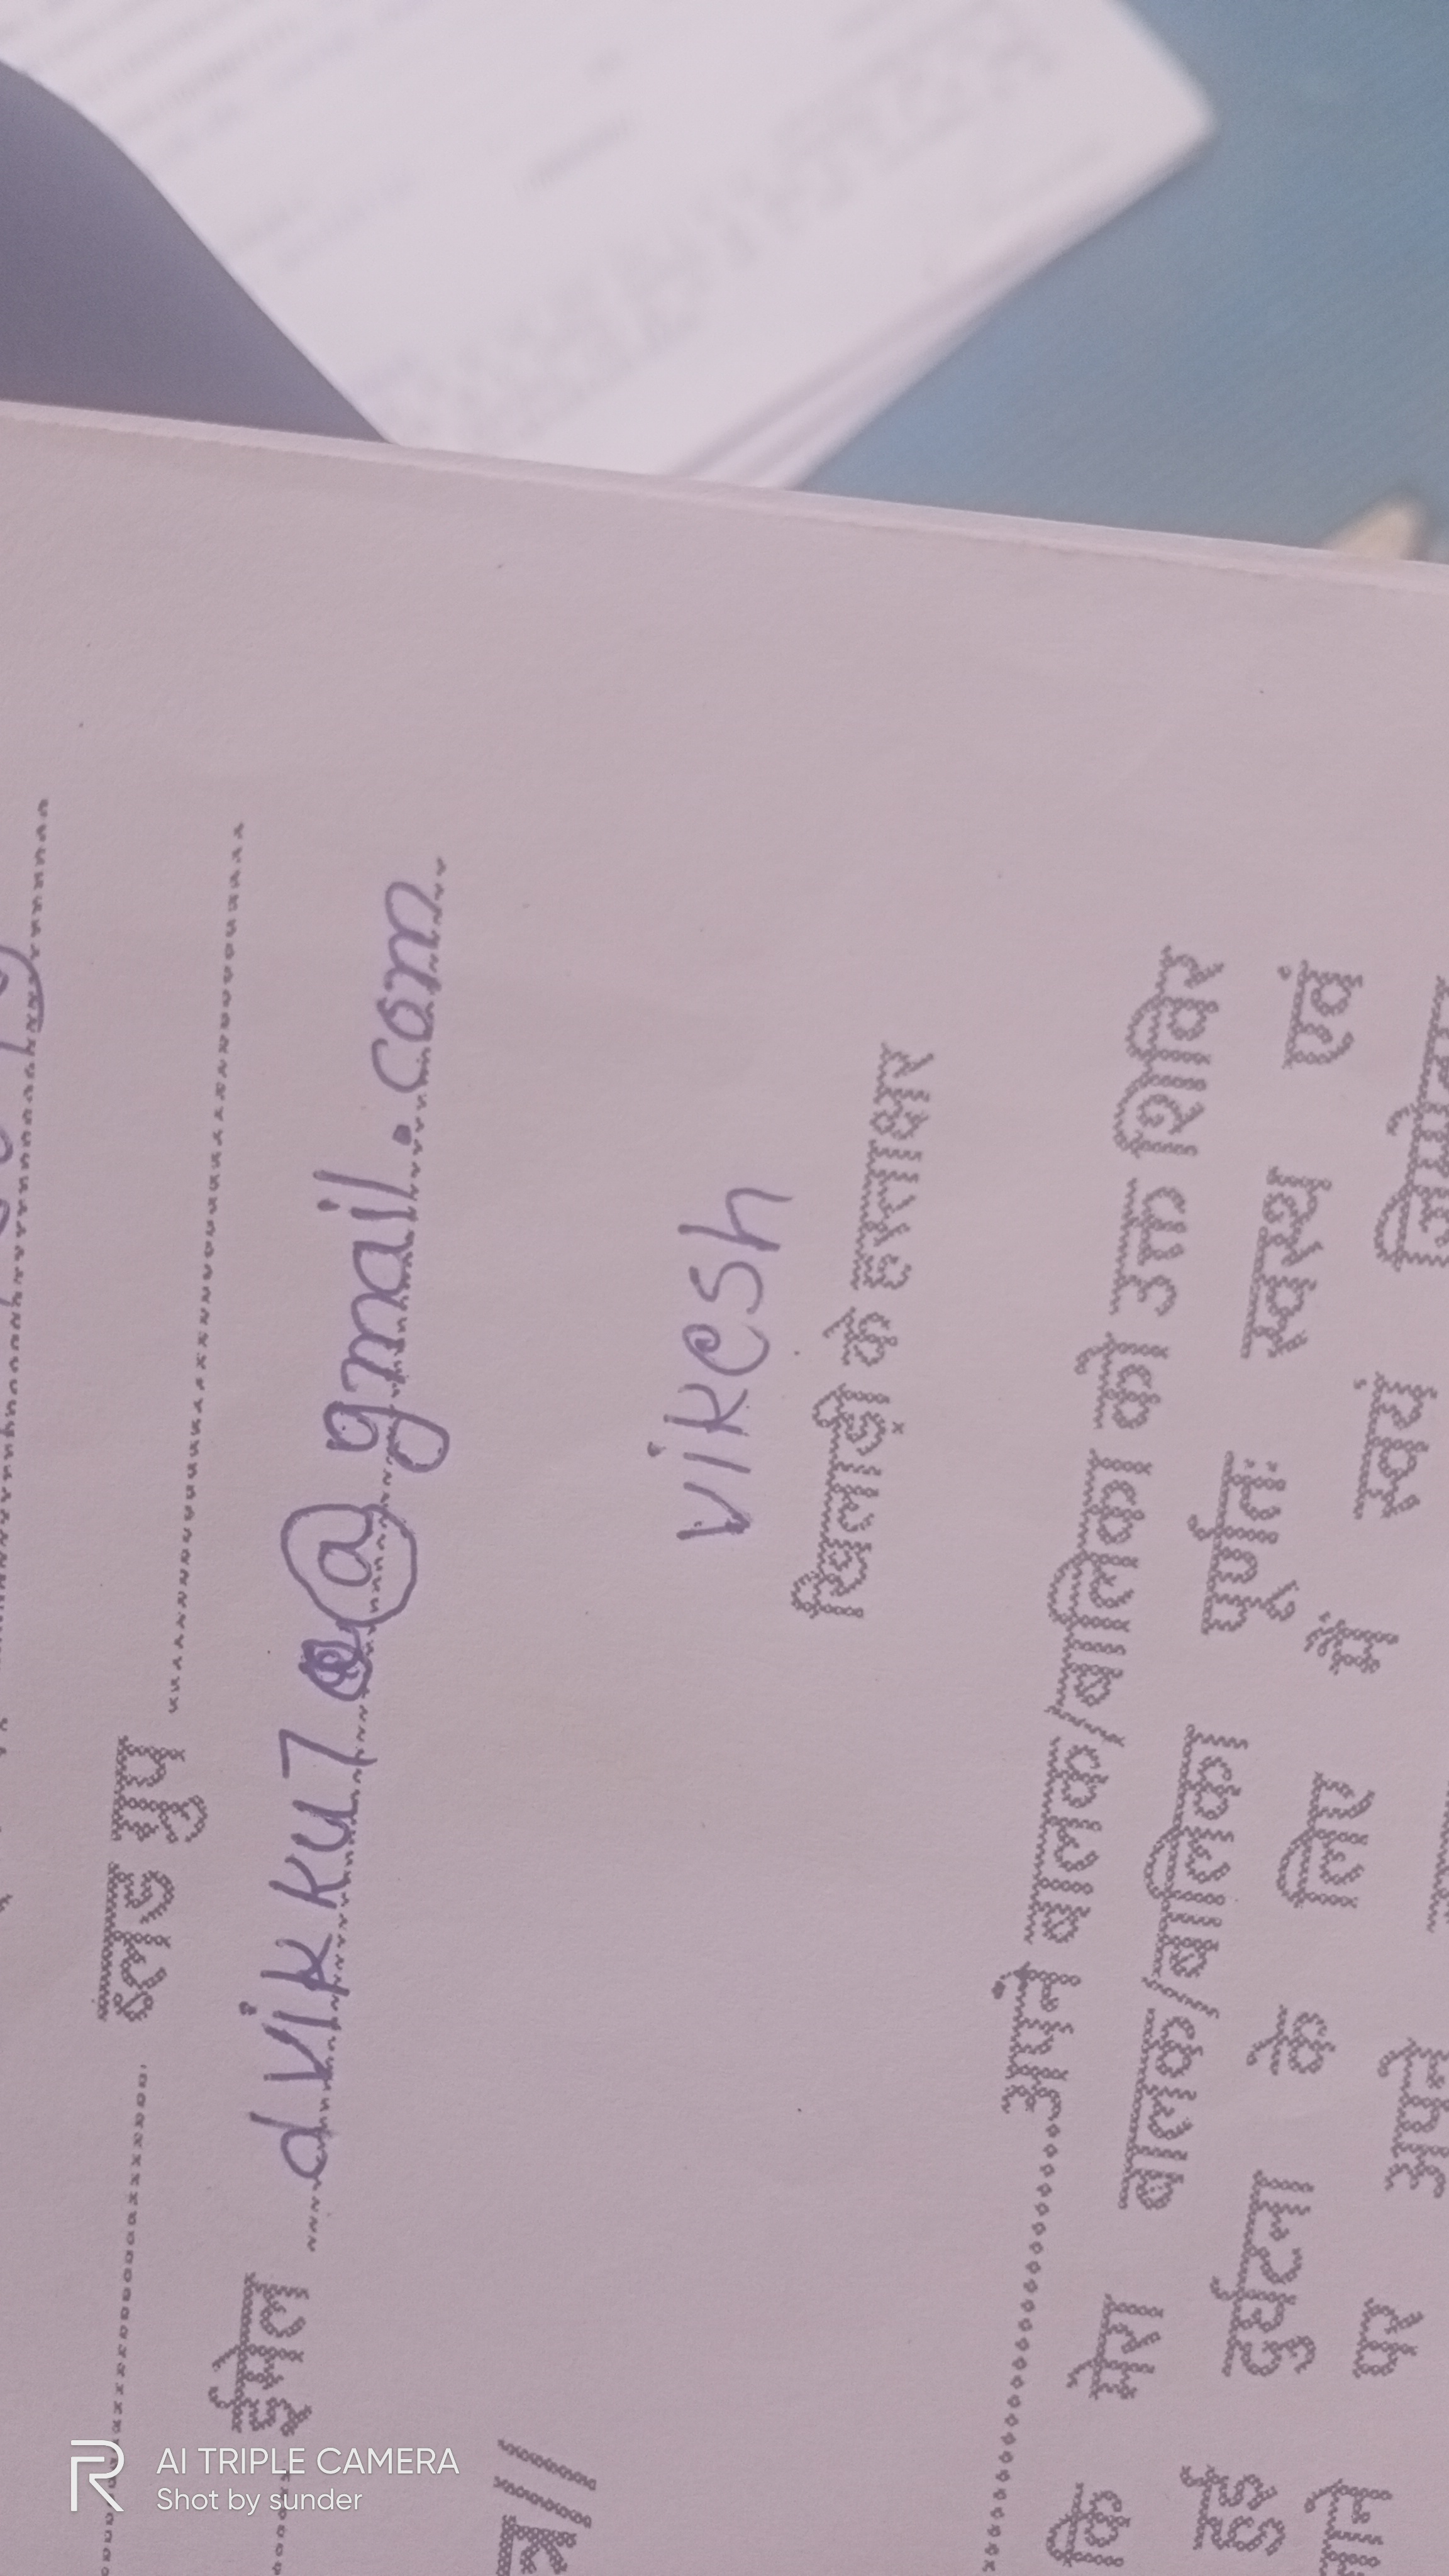 ब्लड ग्रुप
ईमेल dvikku7@gmail.com
vikesh
खिलाड़ी के हस्ताक्षर
अपने बालक/बालिका को उक्त शिविर
कि मेरा बालक/बालिका पूर्णतः स्वस्थ एवं
दुर्घटना के लिए मैं स्वयं
पर अपने
AI TRIPLE CAMERA
Shot by sunder